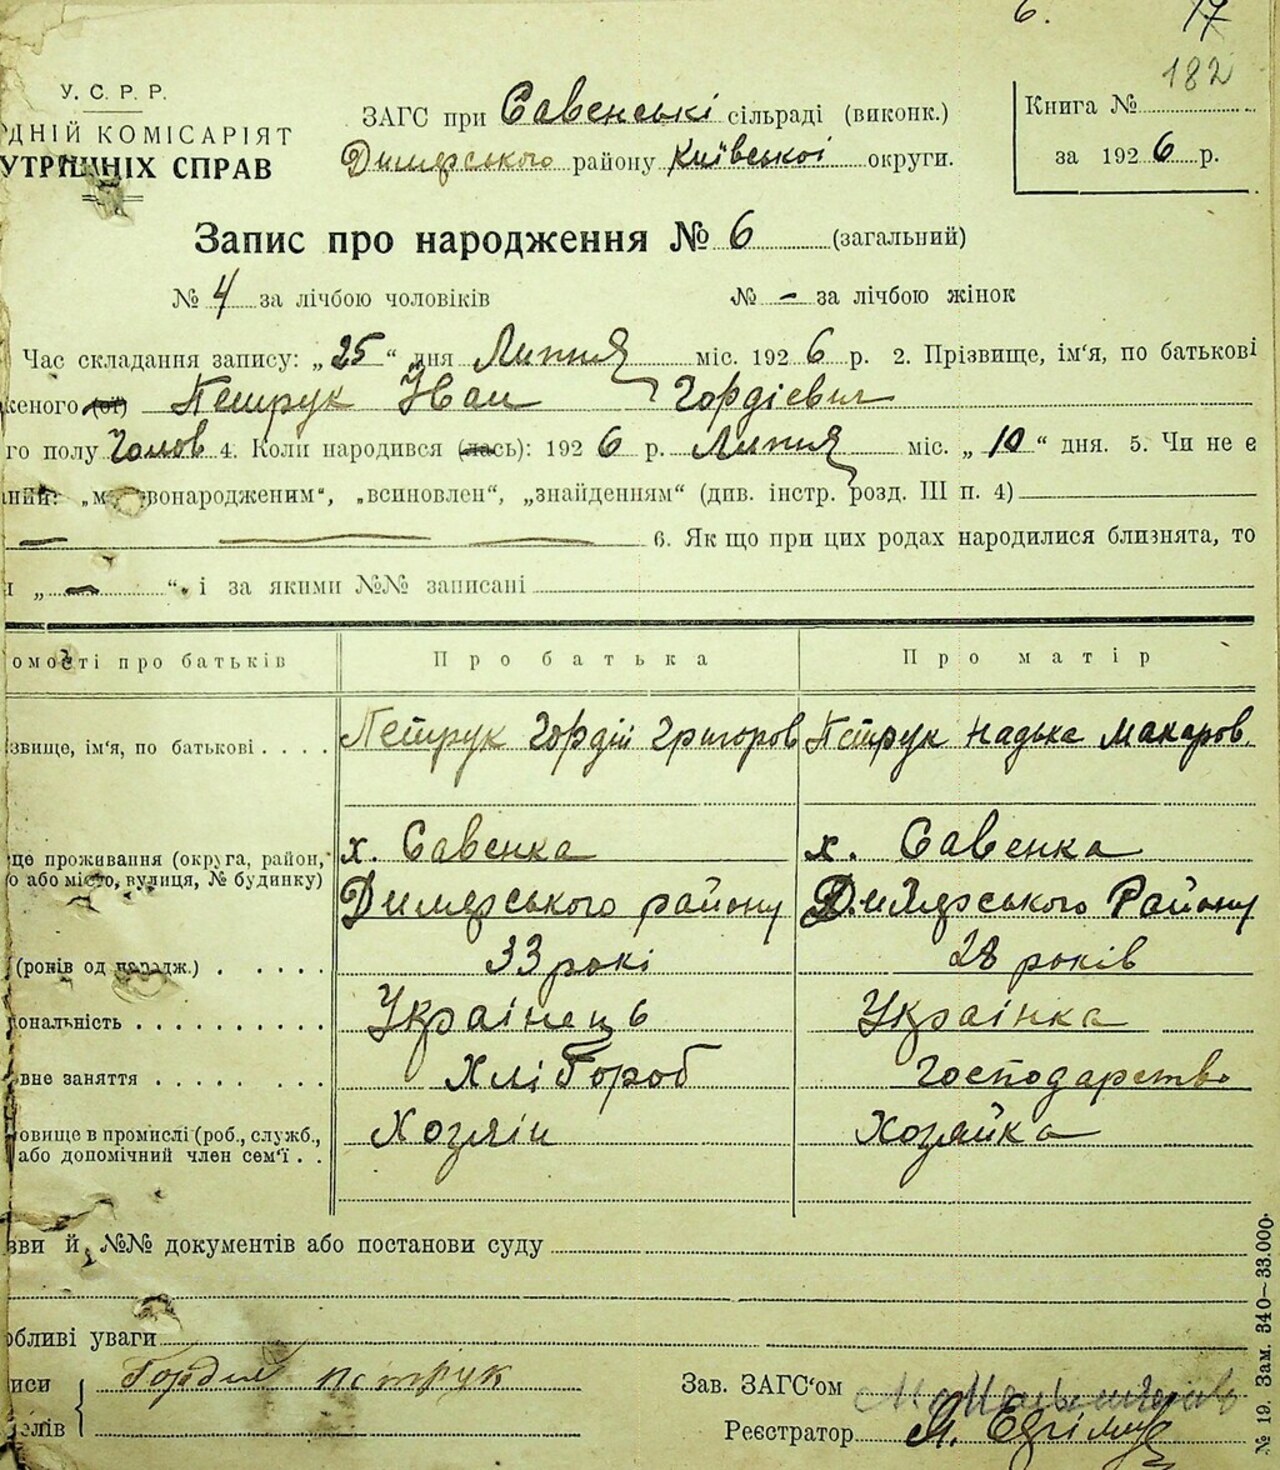 6. 17
182
У. С. Р. Р.
ДНІЙ КОМІСАРІЯТ
УТРІШНІХ СПРАВ
ЗАГС при Савенські сільраді (виконк.)
Димерського району Київської округи.
Книга №
за 1926 р.
Запис про народження № 6 (загальний)
№ 4 за лічбою чоловіків № – за лічбою жінок
Час складання запису: „25“ дня Липня міс. 1926 р. 2. Прізвище, ім‘я, по батькові
женого (ої) Петрук Іван Гордієвич
го полу Чолов 4. Коли народився (лась): 1926 р. Липня міс. „10“ дня. 5. Чи не є
„мертвонародженим“, „всиновлен“, „знайденням“ (див. інстр. розд. III п. 4)
6. Як що при цих родах народилися близнята, то
„ — “ і за якими №№ записані
омості про батьків Про батька Про матір
звище, ім‘я, по батькові . . . . Петрук Гордій Григоров Петрук Надька Макаров.
це проживання (округа, район,
о або місто, вулиця, № будинку)
х. Савенка х. Савенка
Димерського району Димерського Району
(років од народж.) . . . . . 33 рокі 28 років
ональність . . . . . . . . . . Українець Українка
вне заняття . . . . . . . . Хлібороб Господарство
овище в промислі (роб., служб.,
або допомічний член сем‘ї . . Хозяін Хозяйка
зви й №№ документів або постанови суду
обливі уваги
иси Гордий Петрук
елів
Зав. ЗАГС‘ом
Реєстратор М.
№ 19. Зам. 340—33.000.